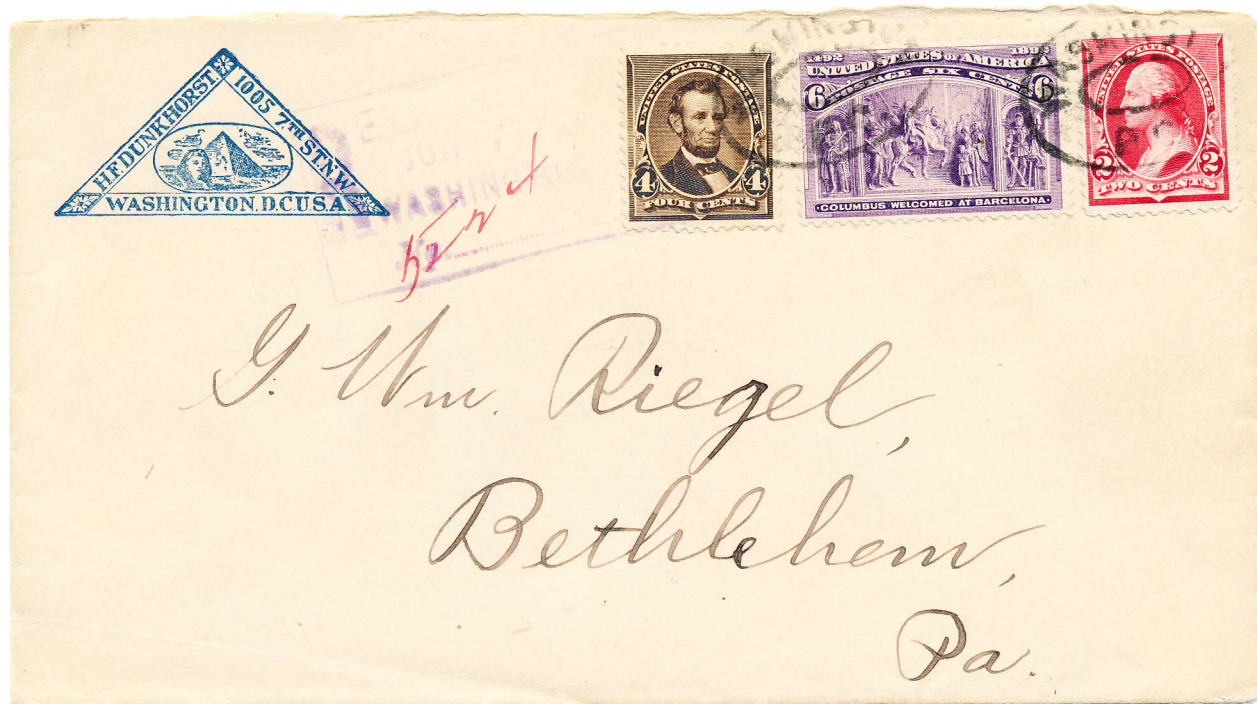 H.F. DUNKHORST.
1005 7TH ST. N.W.
WASHINGTON, D.C. U.S.A.
UNITED STATES POSTAGE
4 4
FOUR CENTS
1492 1892
UNITED STATES OF AMERICA
POSTAGE SIX CENTS
6 6
COLUMBUS WELCOMED AT BARCELONA
UNITED STATES POSTAGE
2 2
TWO CENTS
G. Wm. Riegel,
Bethlehem,
Pa.